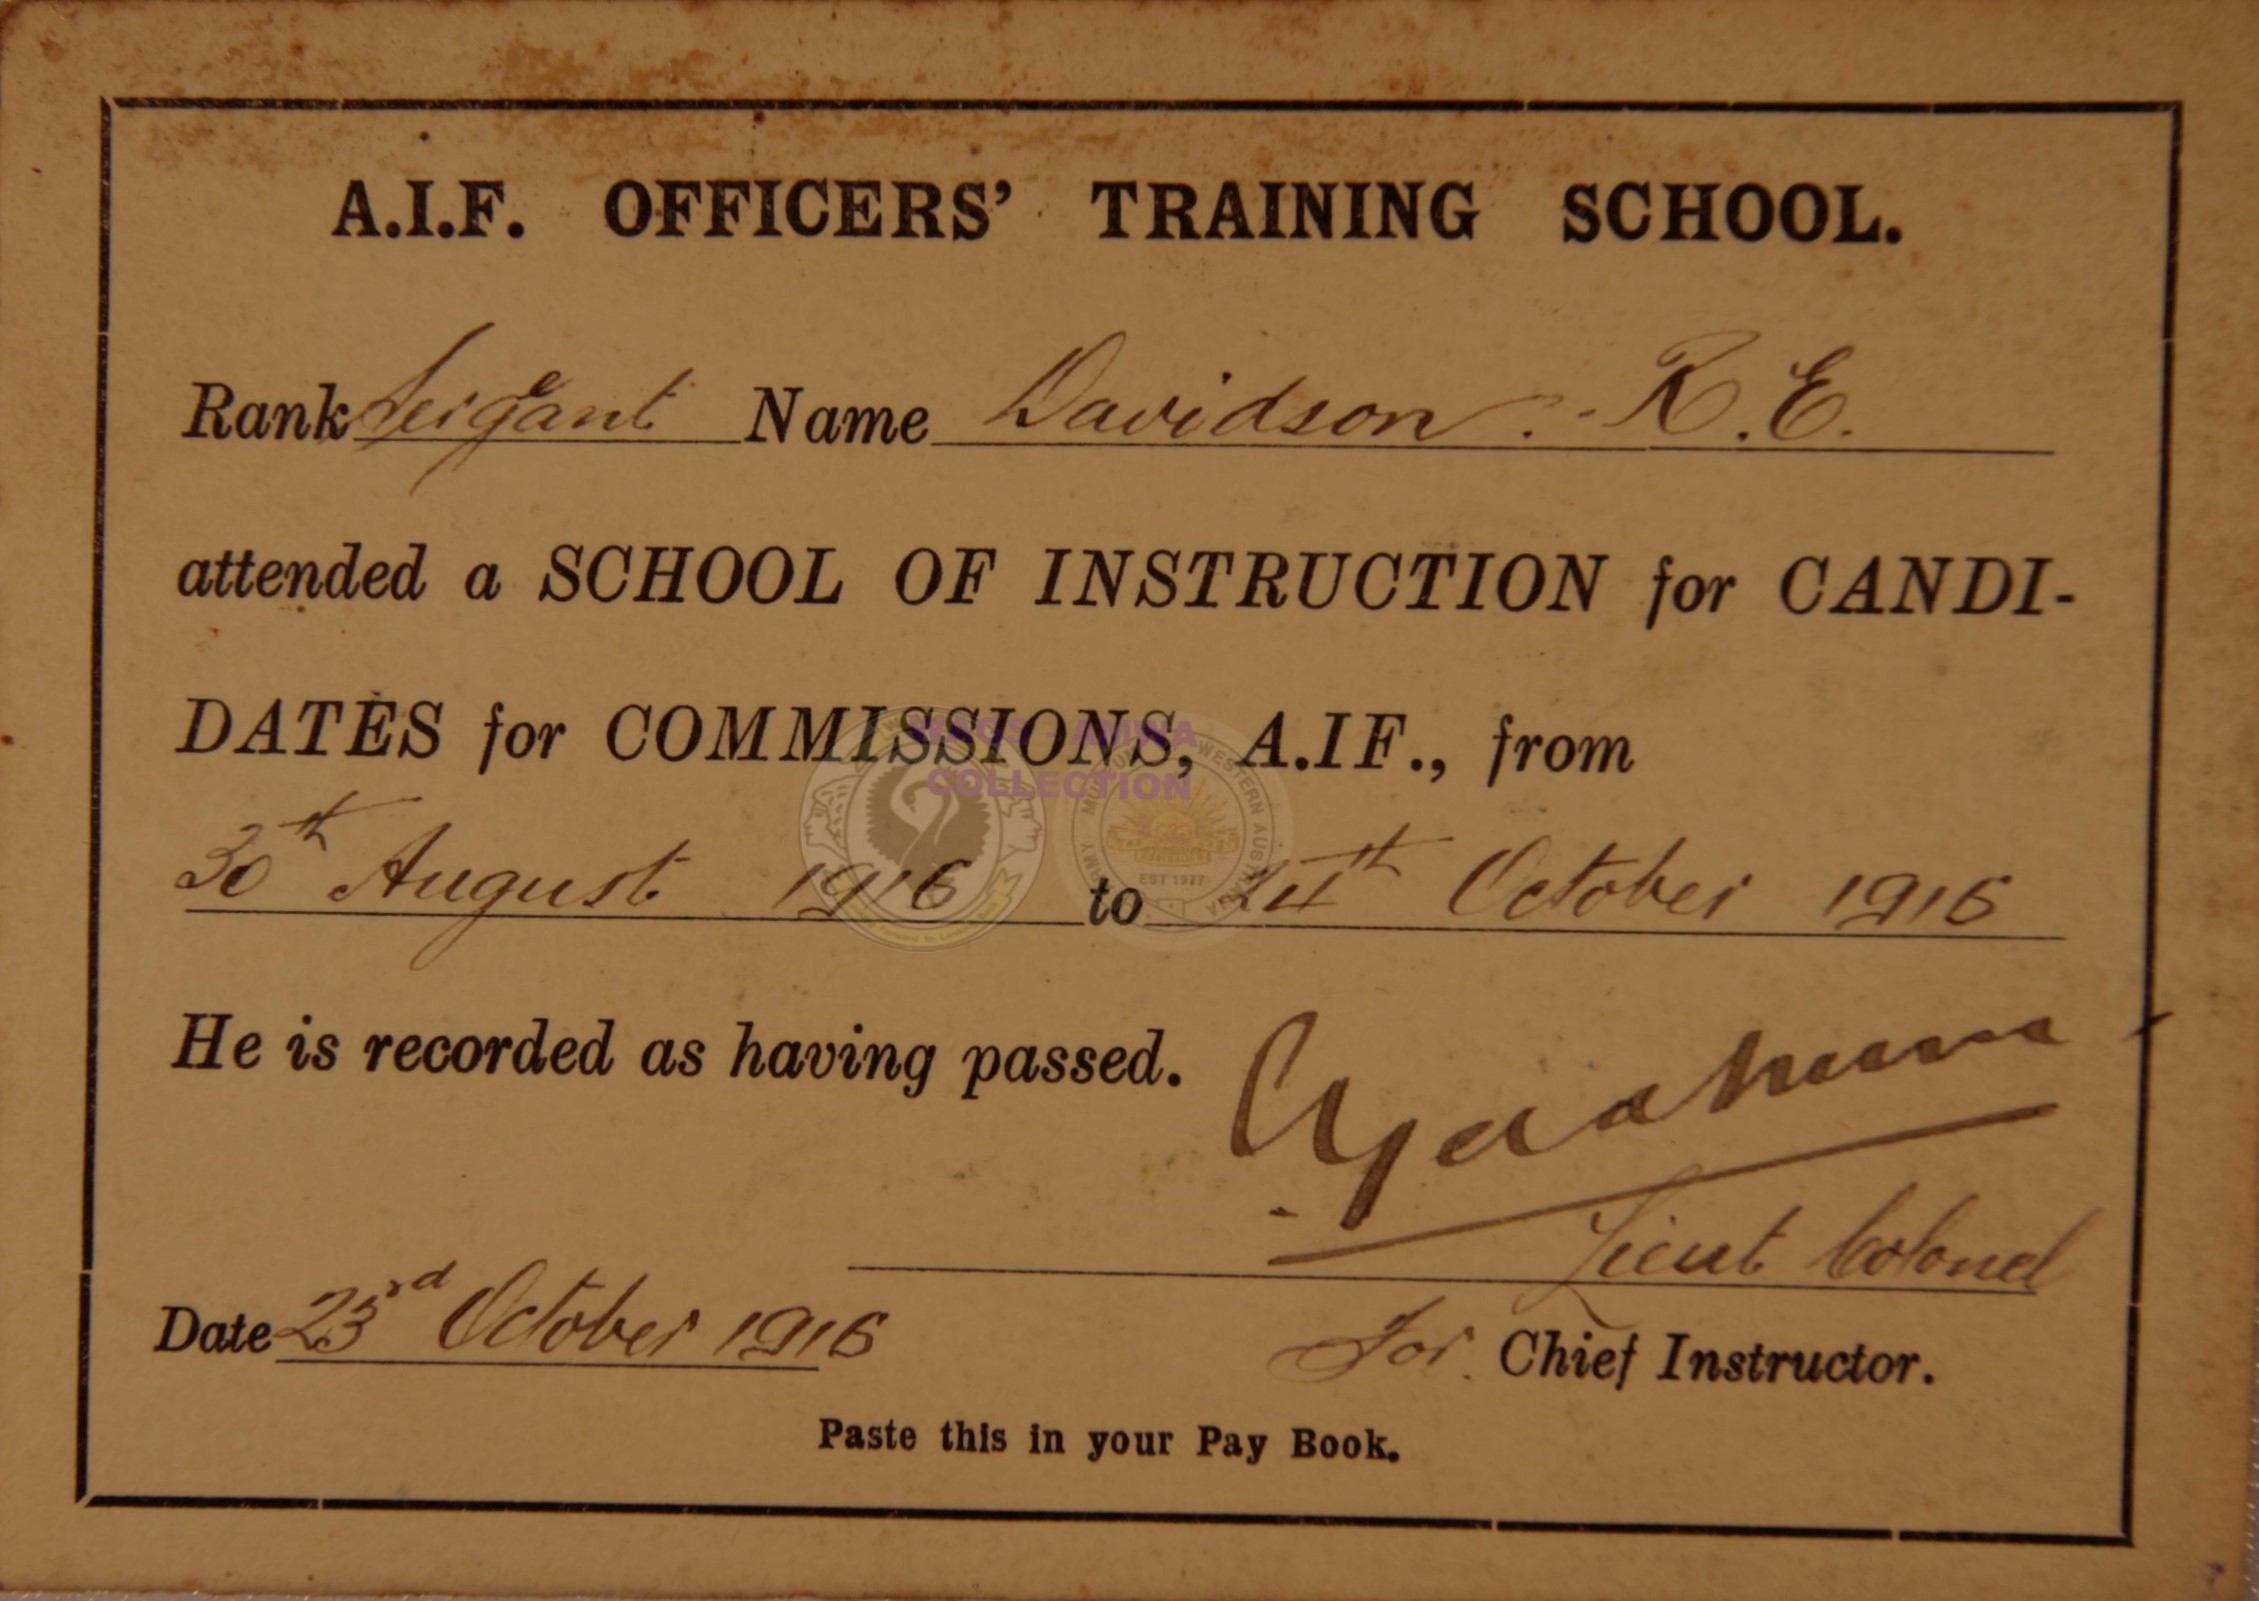 A.I.F. OFFICERS' TRAINING SCHOOL.
Rank Sergeant Name Davidson. R.E.
attended a SCHOOL OF INSTRUCTION for CANDI-
DATES for COMMISSIONS, A.IF., from
30th August 1916 to 24th October 1916
He is recorded as having passed.
Lieut Colonel
Date 23rd October 1916 For Chief Instructor.
Paste this in your Pay Book.
COLLECTION
WESTERN AUSTRALIA
EST 1977